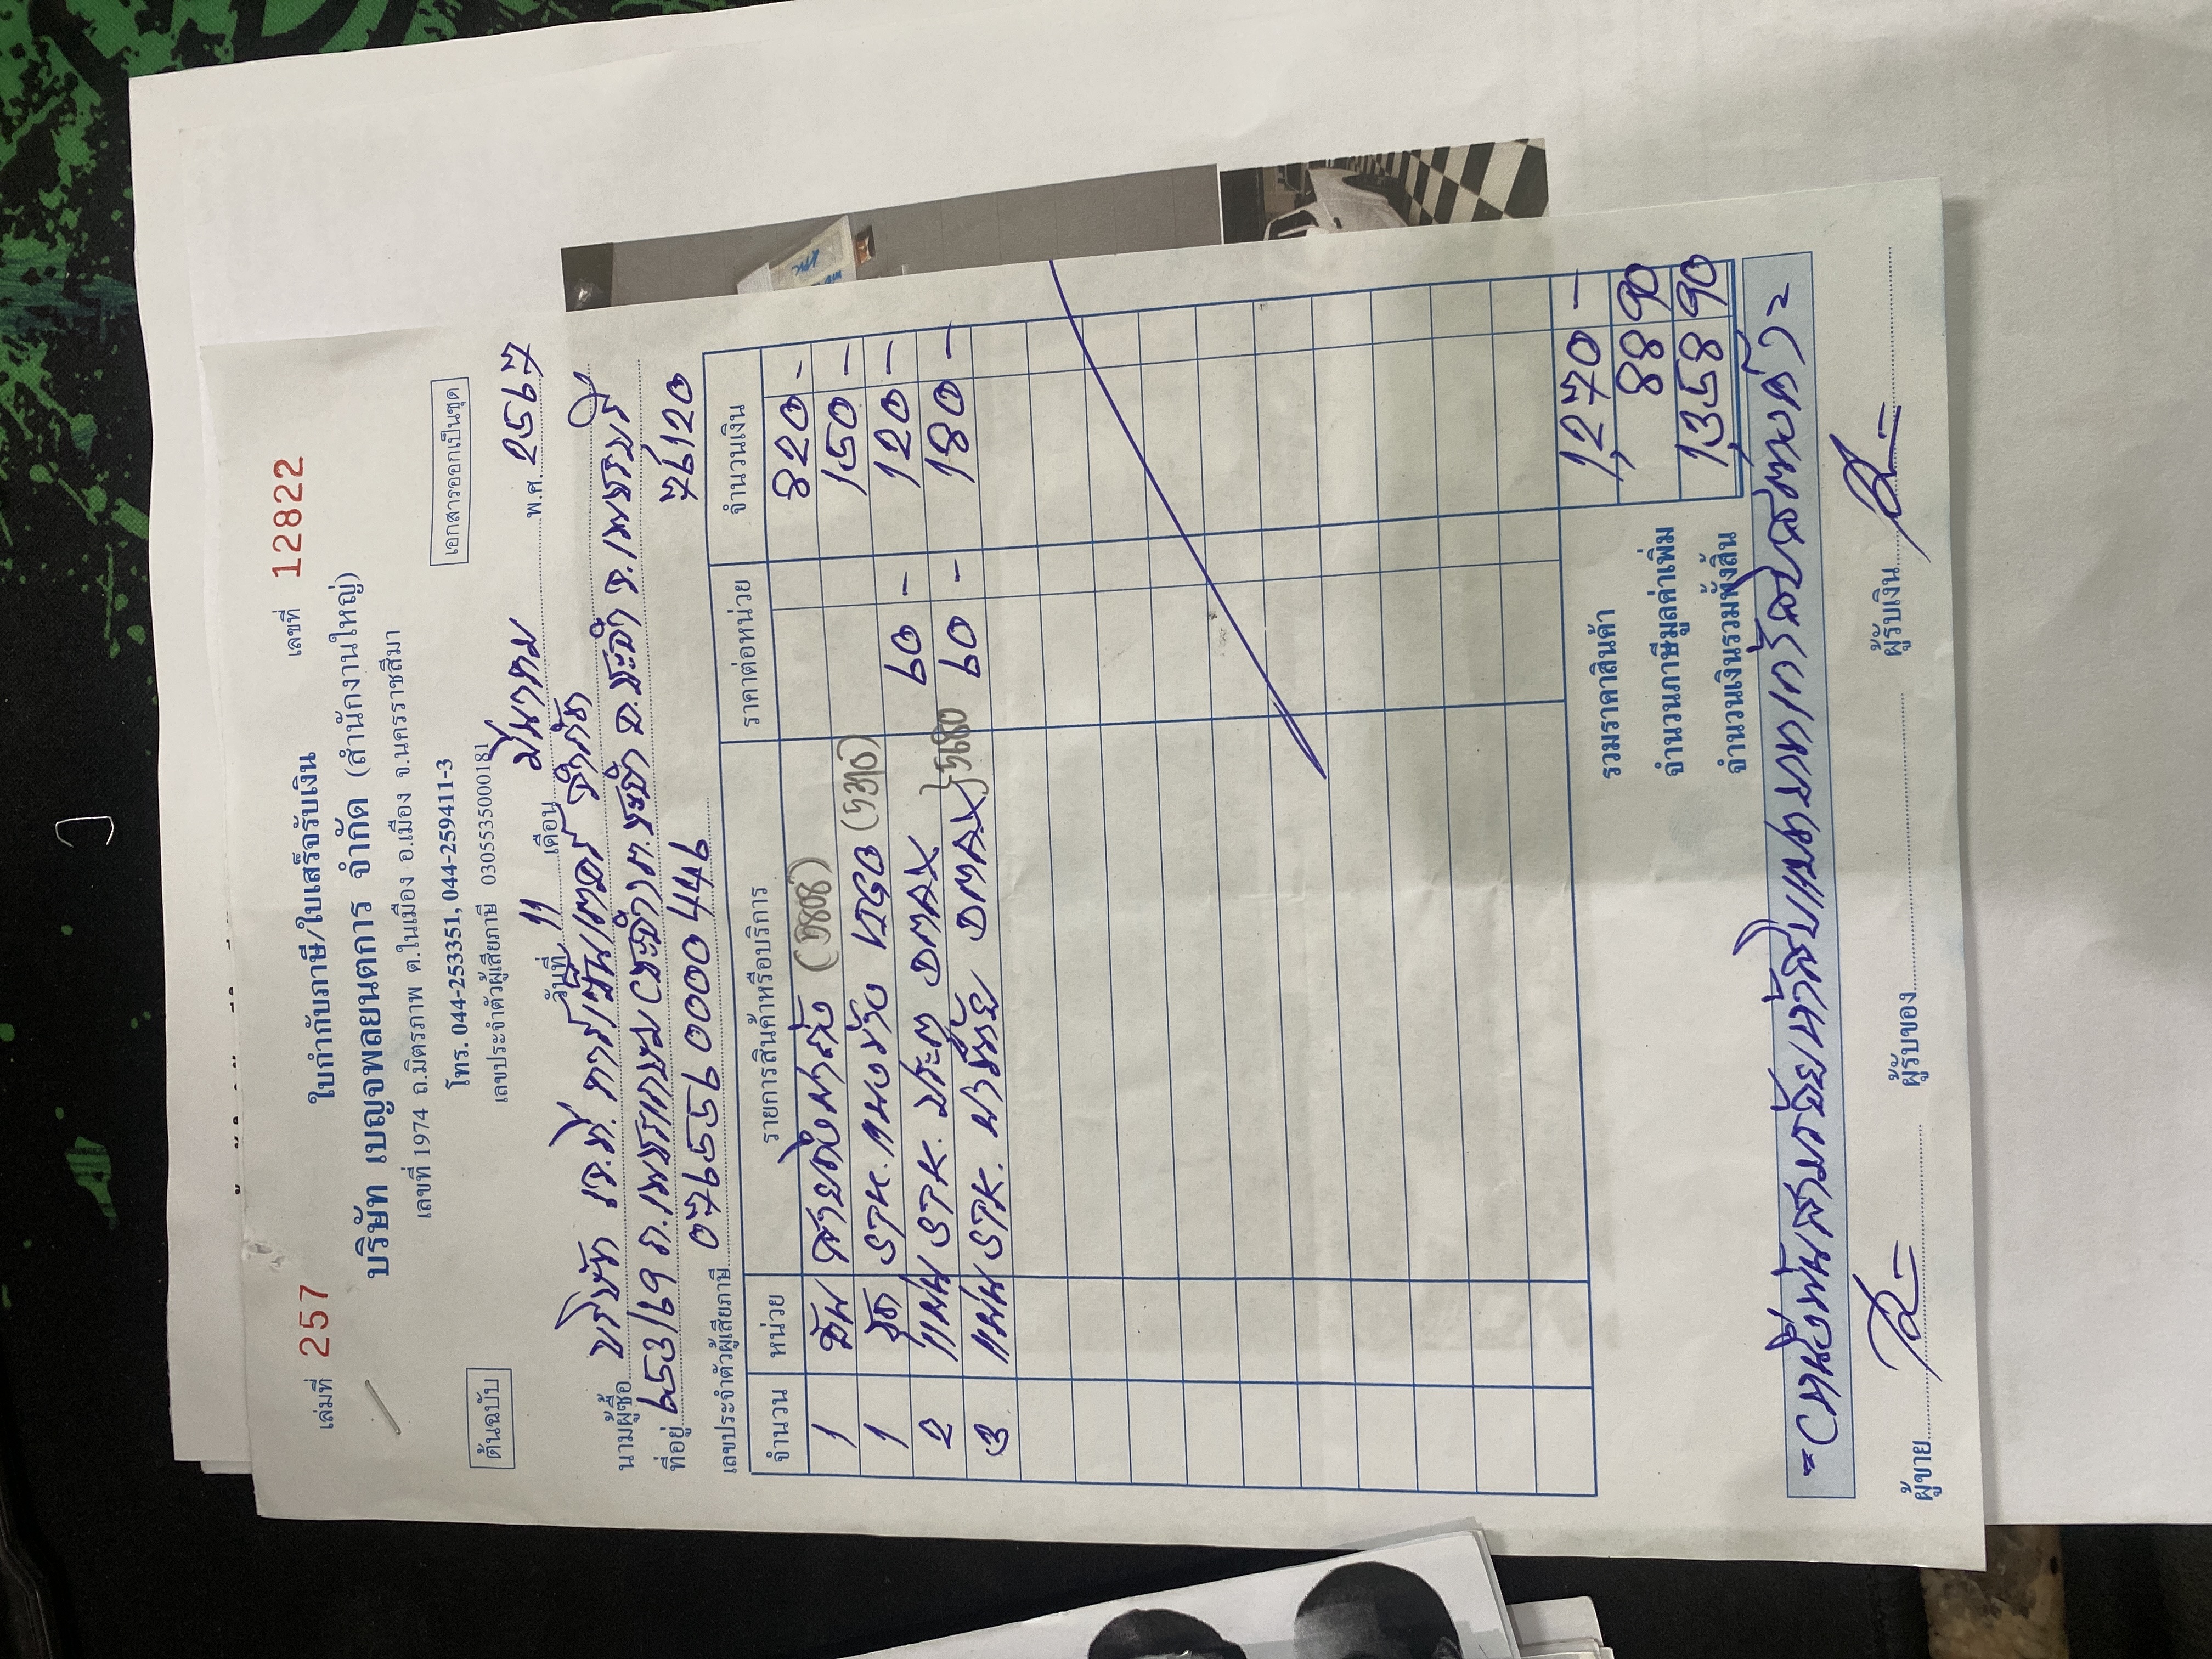 เล่มที่ 257 ใบกำกับภาษี/ใบเสร็จรับเงิน เลขที่ 12822
บริษัท เบญจพลยนตการ จำกัด (สำนักงานใหญ่)
เลขที่ 1974 ถ.มิตรภาพ ต.ในเมือง อ.เมือง จ.นครราชสีมา
โทร. 044-253351, 044-259411-3
ต้นฉบับ เลขประจำตัวผู้เสียภาษี 0305535000181 เอกสารออกเป็นชุด
วันที่ 11 เดือน มีนาคม พ.ศ. 2567
นามผู้ซื้อ บริษัท เจ.ที. คาร์เซ็นเตอร์ จำกัด
ที่อยู่ 953/19 ถ.เพชรเกษม ต.ชะอำ อ.ชะอำ จ.เพชรบุรี
เลขประจำตัวผู้เสียภาษี 0765590000449 76120
จำนวน หน่วย รายการสินค้าหรือบริการ ราคาต่อหน่วย จำนวนเงิน
1 820 -
1 ชุด STK. 150 -
2 แผ่น STK. ประตู DMAX 60 - 120 -
3 แผ่น STK. DMAX 60 - 180 -
รวมราคาสินค้า 1,270 -
จำนวนภาษีมูลค่าเพิ่ม 88 90
จำนวนเงินรวมทั้งสิ้น 1,358 90
= (หนึ่งพันสามร้อยห้าสิบแปดบาทเก้าสิบสตางค์) =
ผู้ขาย ผู้รับของ ผู้รับเงิน